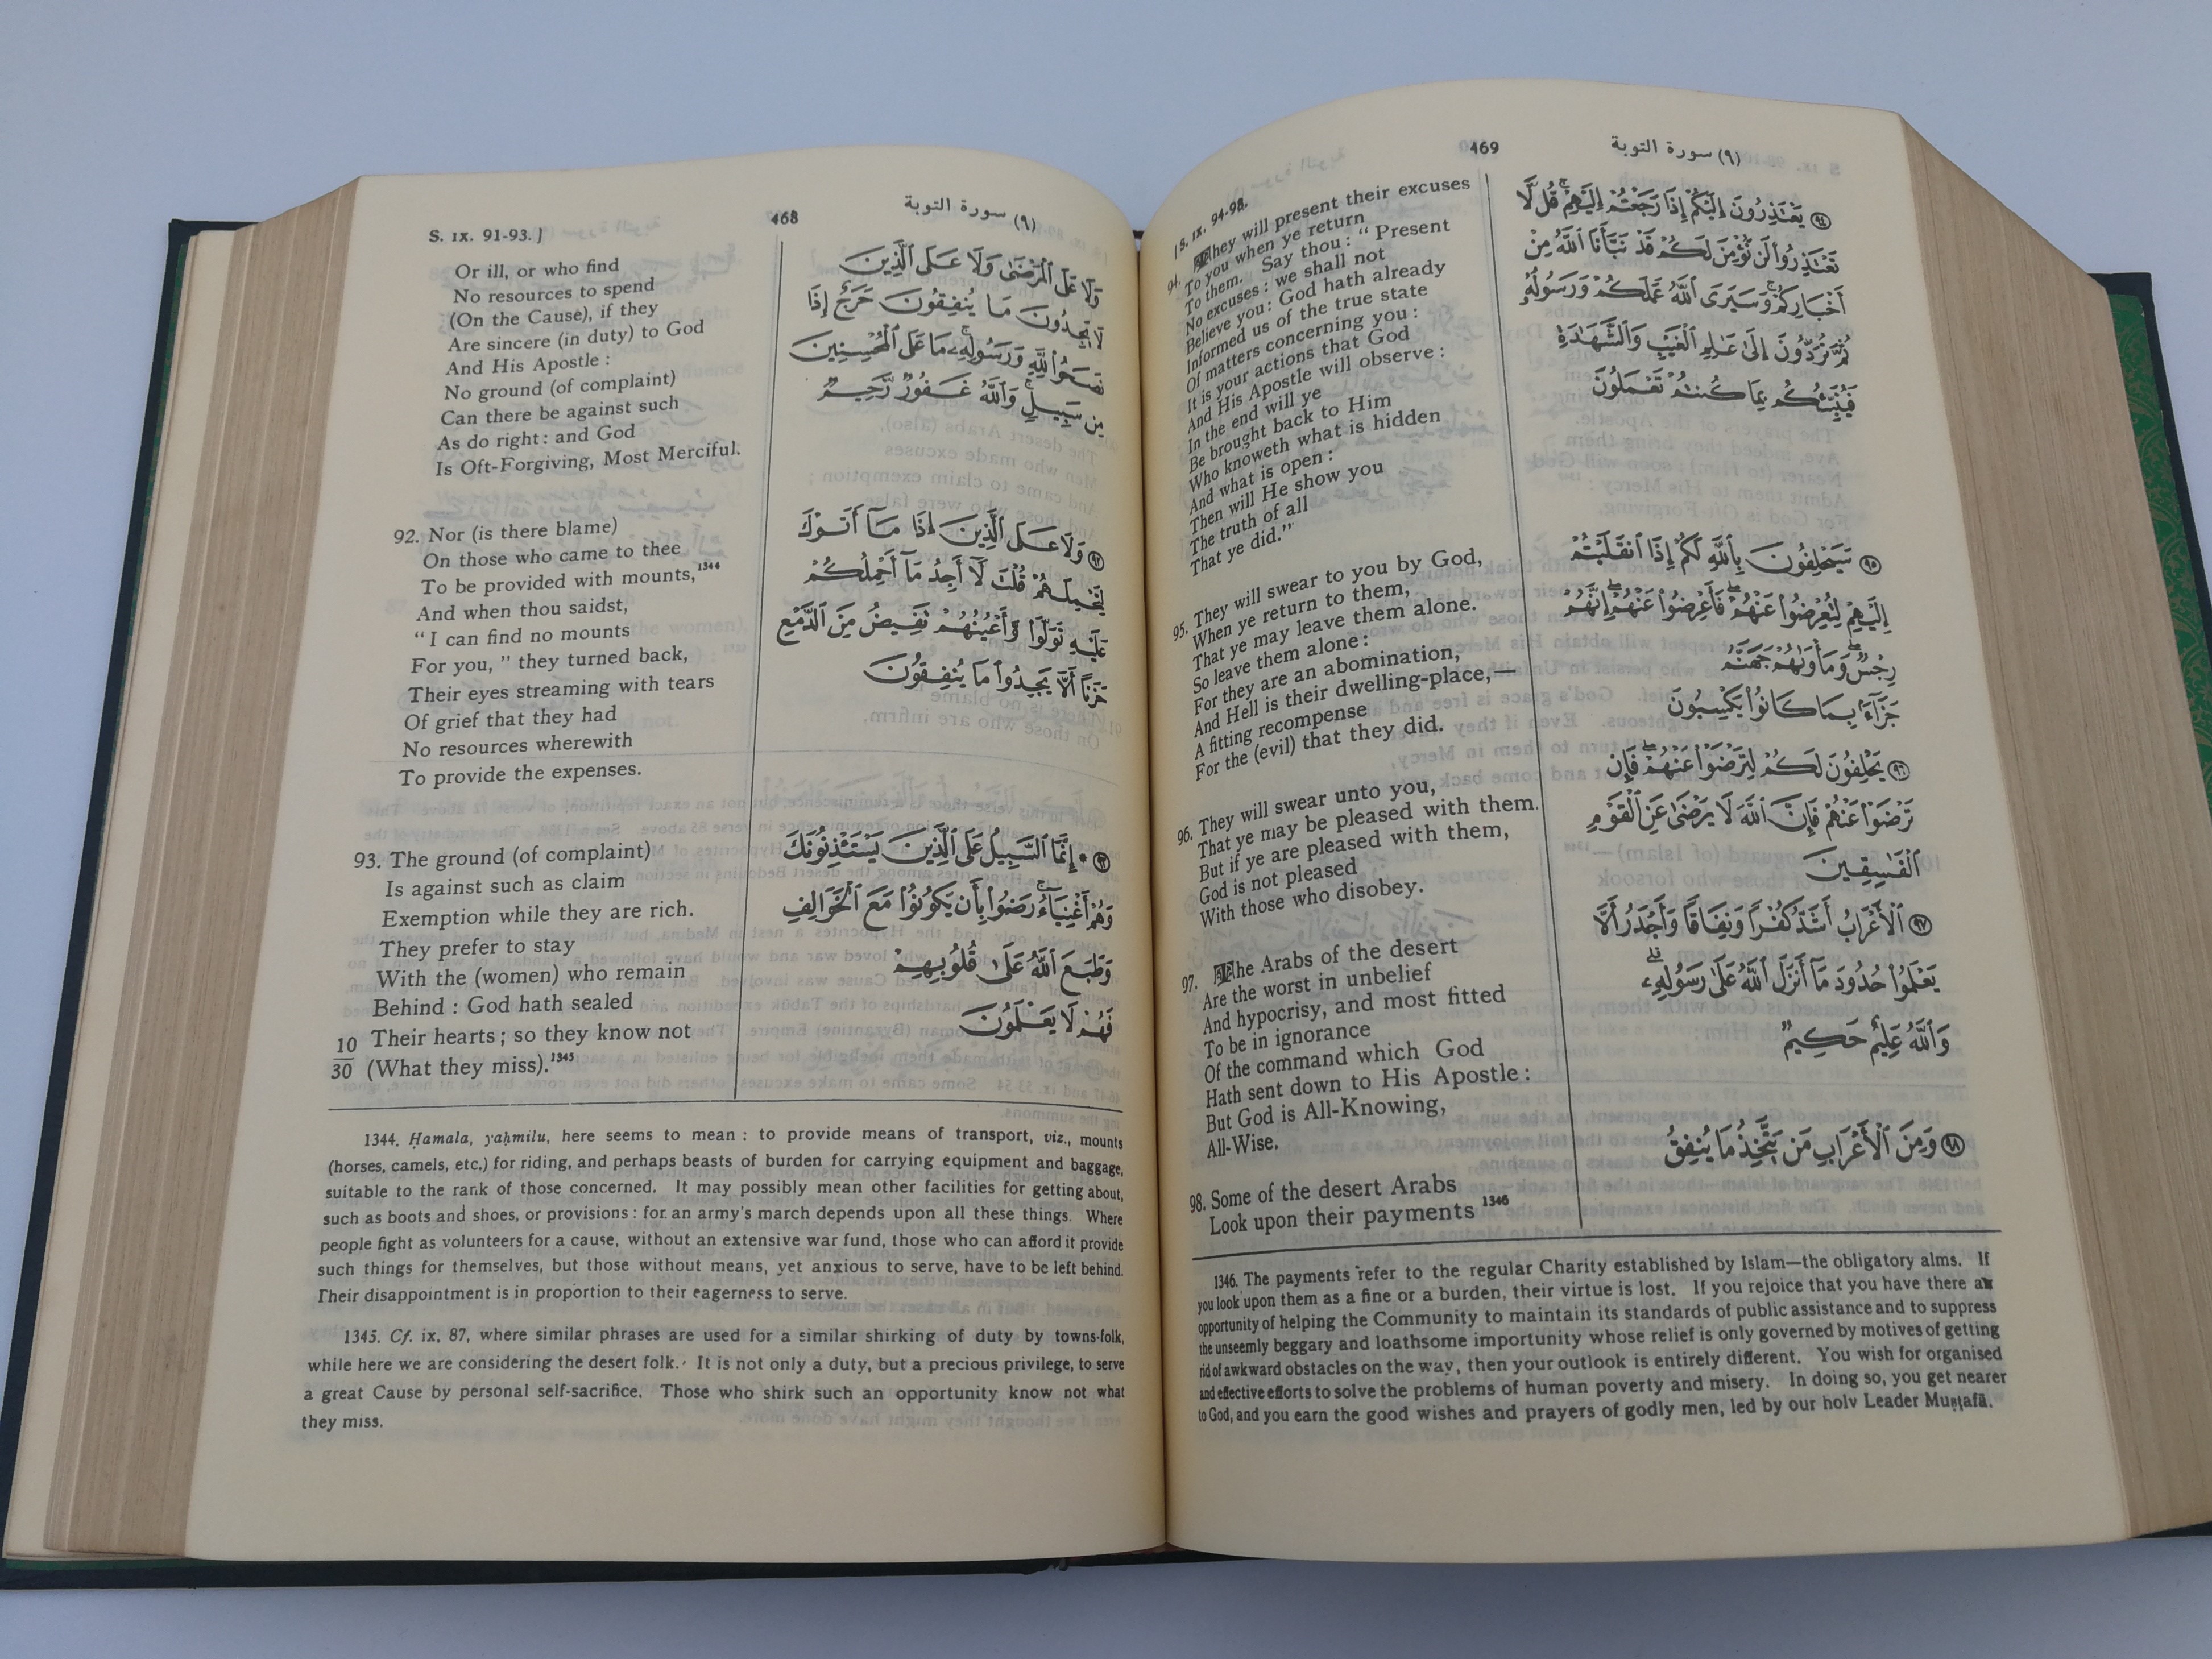 468
(٩) سورة التوبة
S. IX. 91-93. ]
Or ill, or who find
No resources to spend
(On the Cause), if they
Are sincere (in duty) to God
And His Apostle :
No ground (of complaint)
Can there be against such
As do right : and God
Is Oft-Forgiving, Most Merciful.
وَلَا عَلَى ٱلْمَرْضَىٰ وَلَا عَلَى ٱلَّذِينَ
لَا يَجِدُونَ مَا يُنفِقُونَ حَرَجٌ إِذَا
نَصَحُوا۟ لِلَّهِ وَرَسُولِهِۦ ۚ مَا عَلَى ٱلْمُحْسِنِينَ
مِن سَبِيلٍ ۚ وَٱللَّهُ غَفُورٌ رَّحِيمٌ
92. Nor (is there blame)
On those who came to thee
To be provided with mounts,1344
And when thou saidst,
“ I can find no mounts
For you, ” they turned back,
Their eyes streaming with tears
Of grief that they had
No resources wherewith
To provide the expenses.
٩٢ وَلَا عَلَى ٱلَّذِينَ إِذَا مَآ أَتَوْكَ
لِتَحْمِلَهُمْ قُلْتَ لَآ أَجِدُ مَآ أَحْمِلُكُمْ
عَلَيْهِ تَوَلَّوا۟ وَّأَعْيُنُهُمْ تَفِيضُ مِنَ ٱلدَّمْعِ
حَزَنًا أَلَّا يَجِدُوا۟ مَا يُنفِقُونَ
93. The ground (of complaint)
Is against such as claim
Exemption while they are rich.
They prefer to stay
With the (women) who remain
Behind : God hath sealed
Their hearts ; so they know not
(What they miss).1345
10
30
٩٣ • إِنَّمَا ٱلسَّبِيلُ عَلَى ٱلَّذِينَ يَسْتَـْٔذِنُونَكَ
وَهُمْ أَغْنِيَآءُ ۚ رَضُوا۟ بِأَن يَكُونُوا۟ مَعَ ٱلْخَوَالِفِ
وَطَبَعَ ٱللَّهُ عَلَىٰ قُلُوبِهِمْ
فَهُمْ لَا يَعْلَمُونَ
1344. Ḥamala, yaḥmilu, here seems to mean : to provide means of transport, viz., mounts
(horses, camels, etc.) for riding, and perhaps beasts of burden for carrying equipment and baggage,
suitable to the rank of those concerned. It may possibly mean other facilities for getting about,
such as boots and shoes, or provisions : for an army's march depends upon all these things. Where
people fight as volunteers for a cause, without an extensive war fund, those who can afford it provide
such things for themselves, but those without means, yet anxious to serve, have to be left behind.
Their disappointment is in proportion to their eagerness to serve.
1345. Cf. ix. 87, where similar phrases are used for a similar shirking of duty by towns-folk,
while here we are considering the desert folk. It is not only a duty, but a precious privilege, to serve
a great Cause by personal self-sacrifice. Those who shirk such an opportunity know not what
they miss.
469
(٩) سورة التوبة
[ S. IX. 94-98.
94. They will present their excuses
To you when ye return
To them. Say thou : “ Present
No excuses : we shall not
Believe you : God hath already
Informed us of the true state
Of matters concerning you :
It is your actions that God
And His Apostle will observe :
In the end will ye
Be brought back to Him
Who knoweth what is hidden
And what is open :
Then will He show you
The truth of all
That ye did.”
٩٤ يَعْتَذِرُونَ إِلَيْكُمْ إِذَا رَجَعْتُمْ إِلَيْهِمْ ۚ قُل لَّا
تَعْتَذِرُوا۟ لَن نُّؤْمِنَ لَكُمْ قَدْ نَبَّأَنَا ٱللَّهُ مِنْ
أَخْبَارِكُمْ ۚ وَسَيَرَى ٱللَّهُ عَمَلَكُمْ وَرَسُولُهُۥ
ثُمَّ تُرَدُّونَ إِلَىٰ عَـٰلِمِ ٱلْغَيْبِ وَٱلشَّهَـٰدَةِ
فَيُنَبِّئُكُم بِمَا كُنتُمْ تَعْمَلُونَ
95. They will swear to you by God,
When ye return to them,
That ye may leave them alone.
So leave them alone :
For they are an abomination,
And Hell is their dwelling-place,—
A fitting recompense
For the (evil) that they did.
٩٥ سَيَحْلِفُونَ بِٱللَّهِ لَكُمْ إِذَا ٱنقَلَبْتُمْ
إِلَيْهِمْ لِتُعْرِضُوا۟ عَنْهُمْ ۖ فَأَعْرِضُوا۟ عَنْهُمْ ۖ إِنَّهُمْ
رِجْسٌ ۖ وَمَأْوَىٰهُمْ جَهَنَّمُ
جَزَآءًۢ بِمَا كَانُوا۟ يَكْسِبُونَ
96. They will swear unto you,
That ye may be pleased with them.
But if ye are pleased with them,
God is not pleased
With those who disobey.
٩٦ يَحْلِفُونَ لَكُمْ لِتَرْضَوْا۟ عَنْهُمْ ۖ فَإِن
تَرْضَوْا۟ عَنْهُمْ فَإِنَّ ٱللَّهَ لَا يَرْضَىٰ عَنِ ٱلْقَوْمِ
ٱلْفَـٰسِقِينَ
97. The Arabs of the desert
Are the worst in unbelief
And hypocrisy, and most fitted
To be in ignorance
Of the command which God
Hath sent down to His Apostle :
But God is All-Knowing,
All-Wise.
٩٧ ٱلْأَعْرَابُ أَشَدُّ كُفْرًا وَنِفَاقًا وَأَجْدَرُ أَلَّا
يَعْلَمُوا۟ حُدُودَ مَآ أَنزَلَ ٱللَّهُ عَلَىٰ رَسُولِهِۦ ۗ
وَٱللَّهُ عَلِيمٌ حَكِيمٌ
98. Some of the desert Arabs
Look upon their payments 1346
٩٨ وَمِنَ ٱلْأَعْرَابِ مَن يَتَّخِذُ مَا يُنفِقُ
1346. The payments refer to the regular Charity established by Islam—the obligatory alms. If
you look upon them as a fine or a burden, their virtue is lost. If you rejoice that you have there an
opportunity of helping the Community to maintain its standards of public assistance and to suppress
the unseemly beggary and loathsome importunity whose relief is only governed by motives of getting
rid of awkward obstacles on the way, then your outlook is entirely different. You wish for organised
and effective efforts to solve the problems of human poverty and misery. In doing so, you get nearer
to God, and you earn the good wishes and prayers of godly men, led by our holy Leader Muṣṭafā.